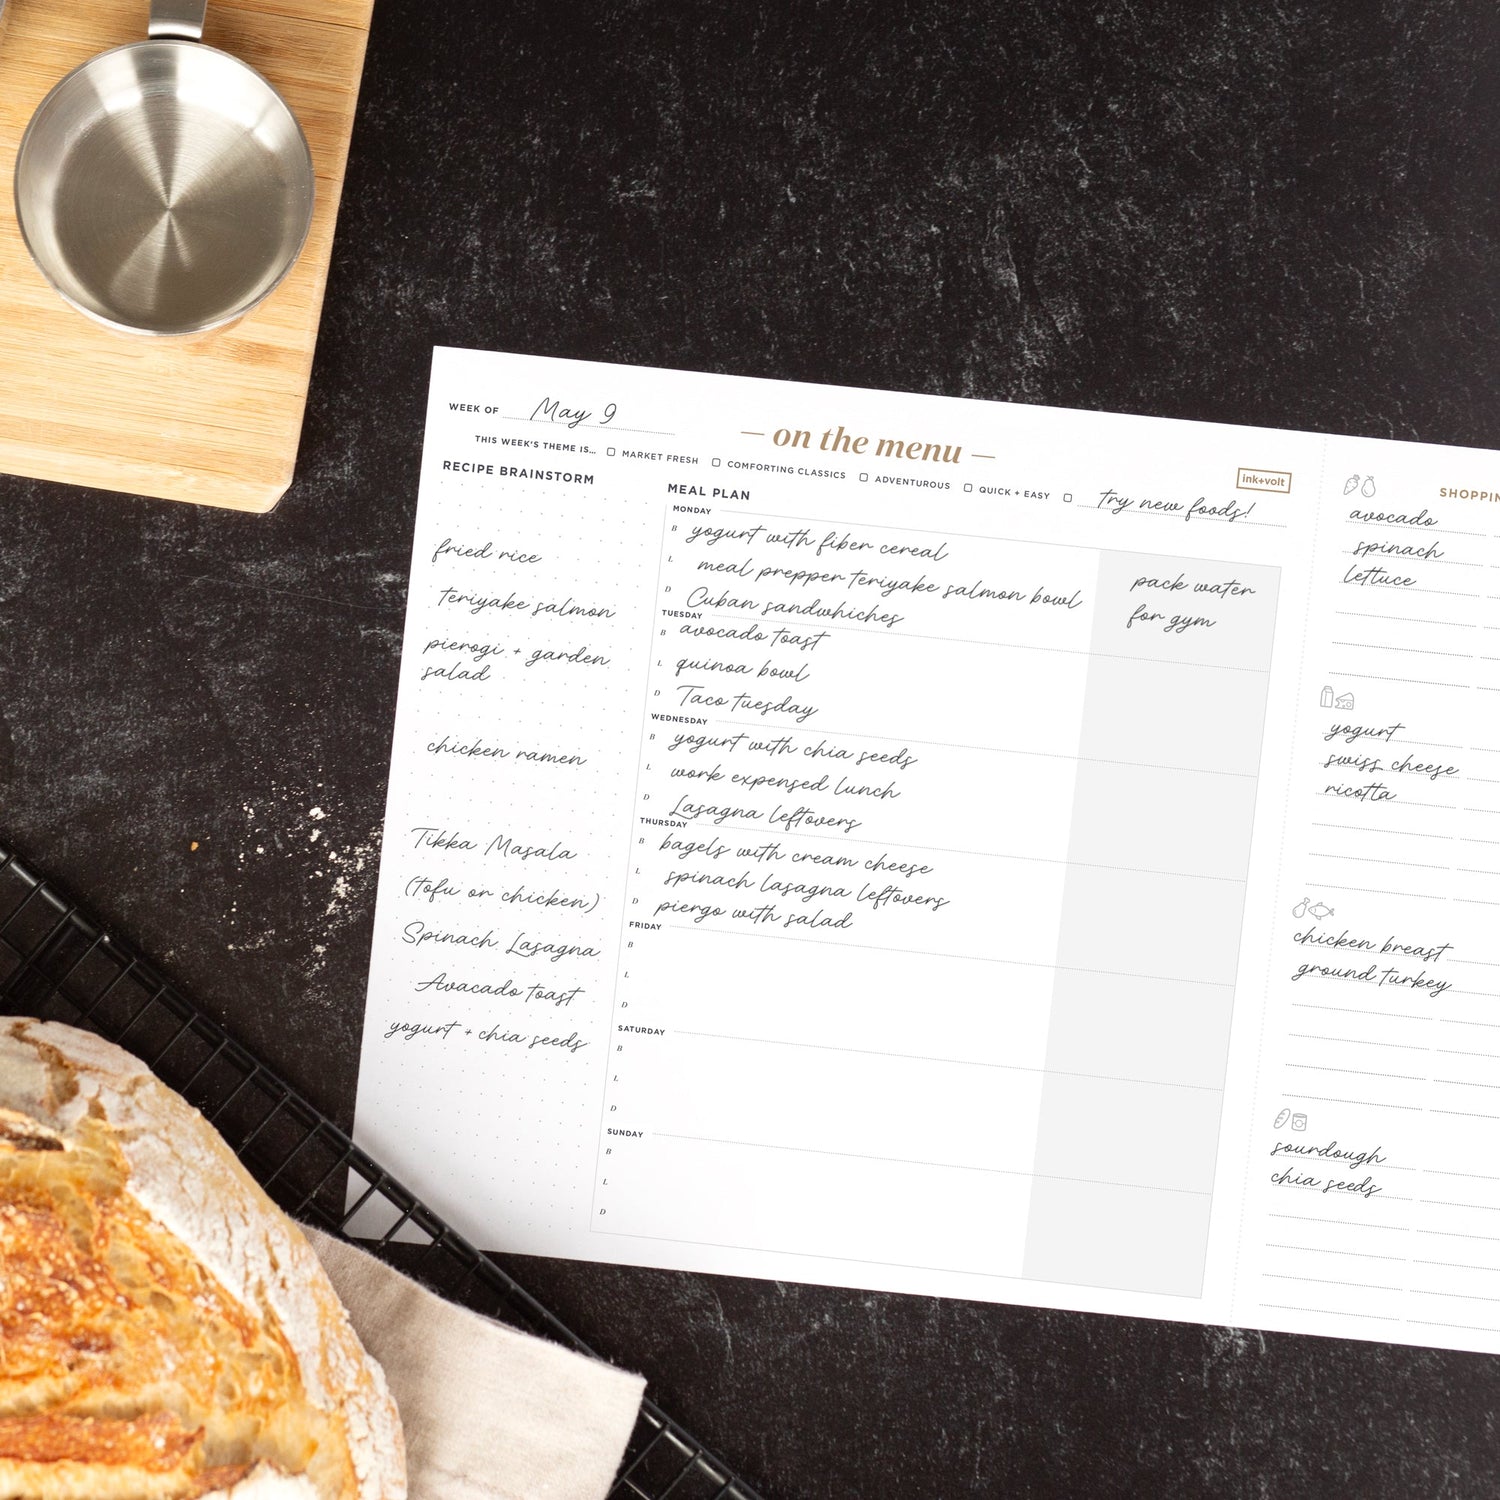 WEEK OF May 9
— on the menu —
THIS WEEK'S THEME IS... MARKET FRESH COMFORTING CLASSICS ADVENTUROUS QUICK + EASY try new foods!
ink+volt
RECIPE BRAINSTORM
fried rice
teriyake salmon
pierogi + garden
salad
chicken ramen
Tikka Masala
(tofu or chicken)
Spinach Lasagna
Avacado toast
yogurt + chia seeds
MEAL PLAN
MONDAY
B yogurt with fiber cereal
L meal prepper teriyake salmon bowl
D Cuban sandwhiches
pack water
for gym
TUESDAY
B avocado toast
L quinoa bowl
D Taco tuesday
WEDNESDAY
B yogurt with chia seeds
L work expensed lunch
D Lasagna leftovers
THURSDAY
B bagels with cream cheese
L spinach lasagna leftovers
D piergo with salad
FRIDAY
B
L
D
SATURDAY
B
L
D
SUNDAY
B
L
D
SHOPPIN
avocado
spinach
lettuce
yogurt
swiss cheese
ricotta
chicken breast
ground turkey
sourdough
chia seeds